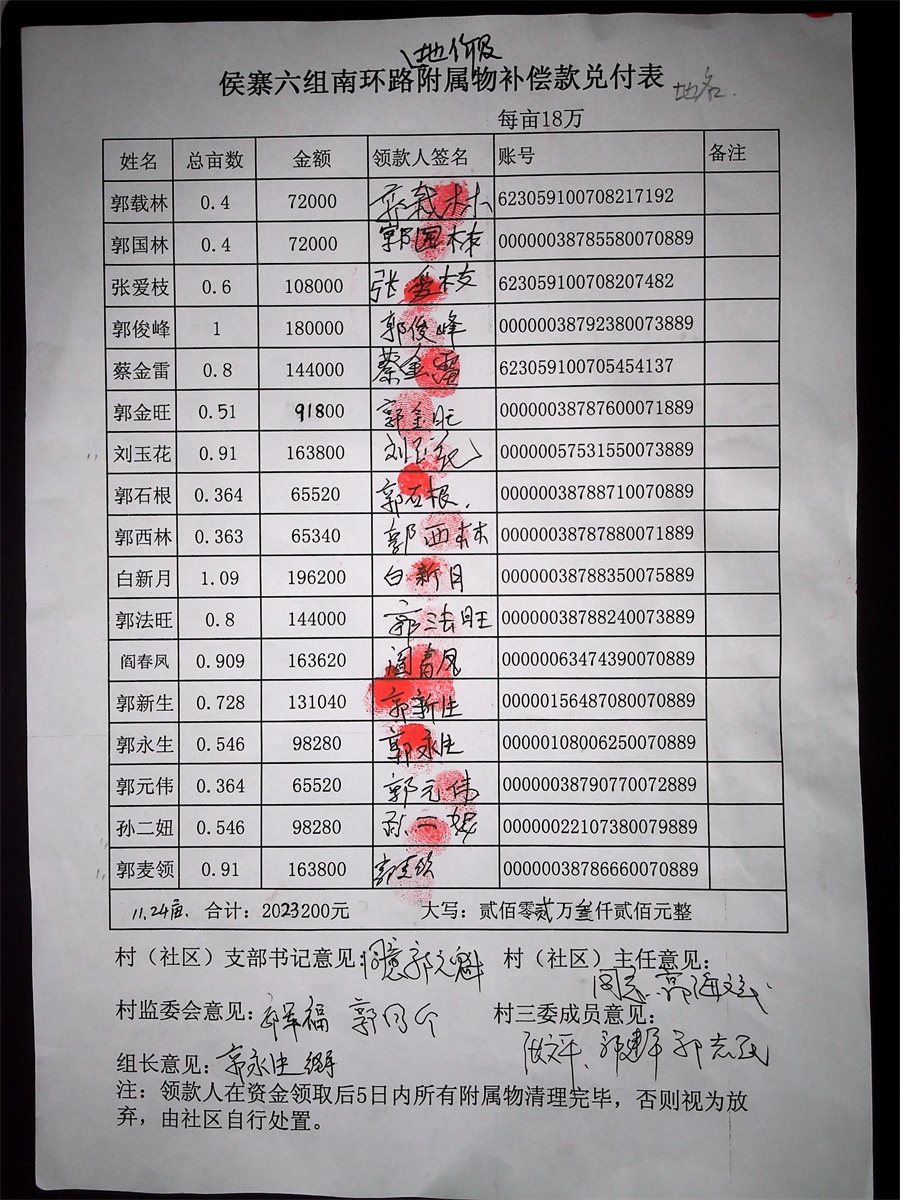 地价及
侯寨六组南环路附属物补偿款兑付表 地名
每亩18万
姓名 总亩数 金额 领款人签名 账号 备注
郭载林 0.4 72000 郭载林 623059100708217192
郭国林 0.4 72000 郭国林 00000038785580070889
张爱枝 0.6 108000 张爱枝 623059100708207482
郭俊峰 1 180000 郭俊峰 00000038792380073889
蔡金雷 0.8 144000 蔡金雷 623059100705454137
郭金旺 0.51 91800 郭金旺 00000038787600071889
刘玉花 0.91 163800 刘玉花 00000057531550073889
郭石根 0.364 65520 郭石根. 00000038788710070889
郭西林 0.363 65340 郭西林 00000038787880071889
白新月 1.09 196200 白新月 00000038788350075889
郭法旺 0.8 144000 郭法旺 00000038788240073889
阎春凤 0.909 163620 阎春凤 00000063474390070889
郭新生 0.728 131040 郭新生 00000156487080070889
郭永生 0.546 98280 郭永生 00000108006250070889
郭元伟 0.364 65520 郭元伟 00000038790770072889
孙二妞 0.546 98280 孙二妞 00000022107380079889
郭麦领 0.91 163800 郭麦领 00000038786660070889
11.24亩. 合计：2023200元 大写：贰佰零贰万叁仟贰佰元整
村（社区）支部书记意见：同意 郭元魁 村（社区）主任意见：
同意
村监委会意见： 村三委成员意见：
组长意见：郭永生
注：领款人在资金领取后5日内所有附属物清理完毕，否则视为放
弃，由社区自行处置。